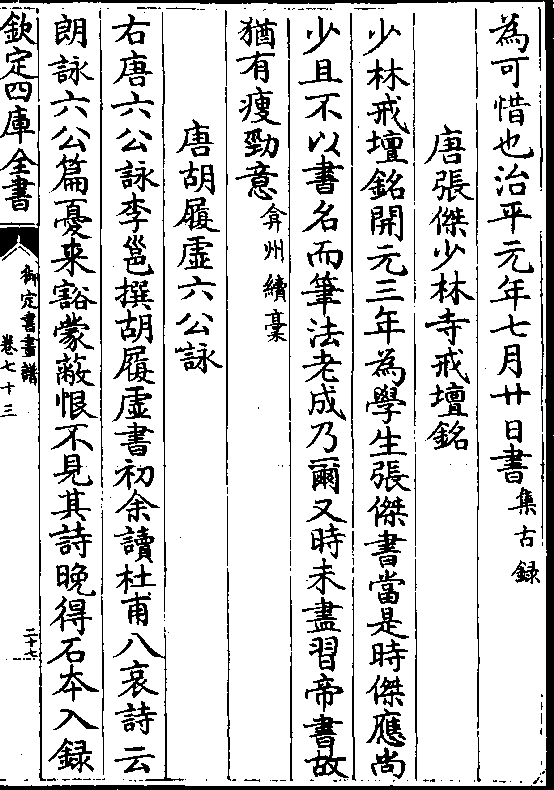 為可惜也治平元年七月廿日書集古録
唐張傑少林寺戒壇銘
少林戒壇銘開元三年為學生張傑書當是時傑應尚
少且不以書名而筆法老成乃爾又時未盡習帝書故
猶有瘦勁意弇州續稾
唐胡履虛六公詠
右唐六公詠李邕撰胡履虛書初余讀杜甫八哀詩云
朗詠六公篇憂来豁蒙蔽恨不見其詩晚得石本入録
欽定四庫全書
御定書畫譜
卷七十三
二十七